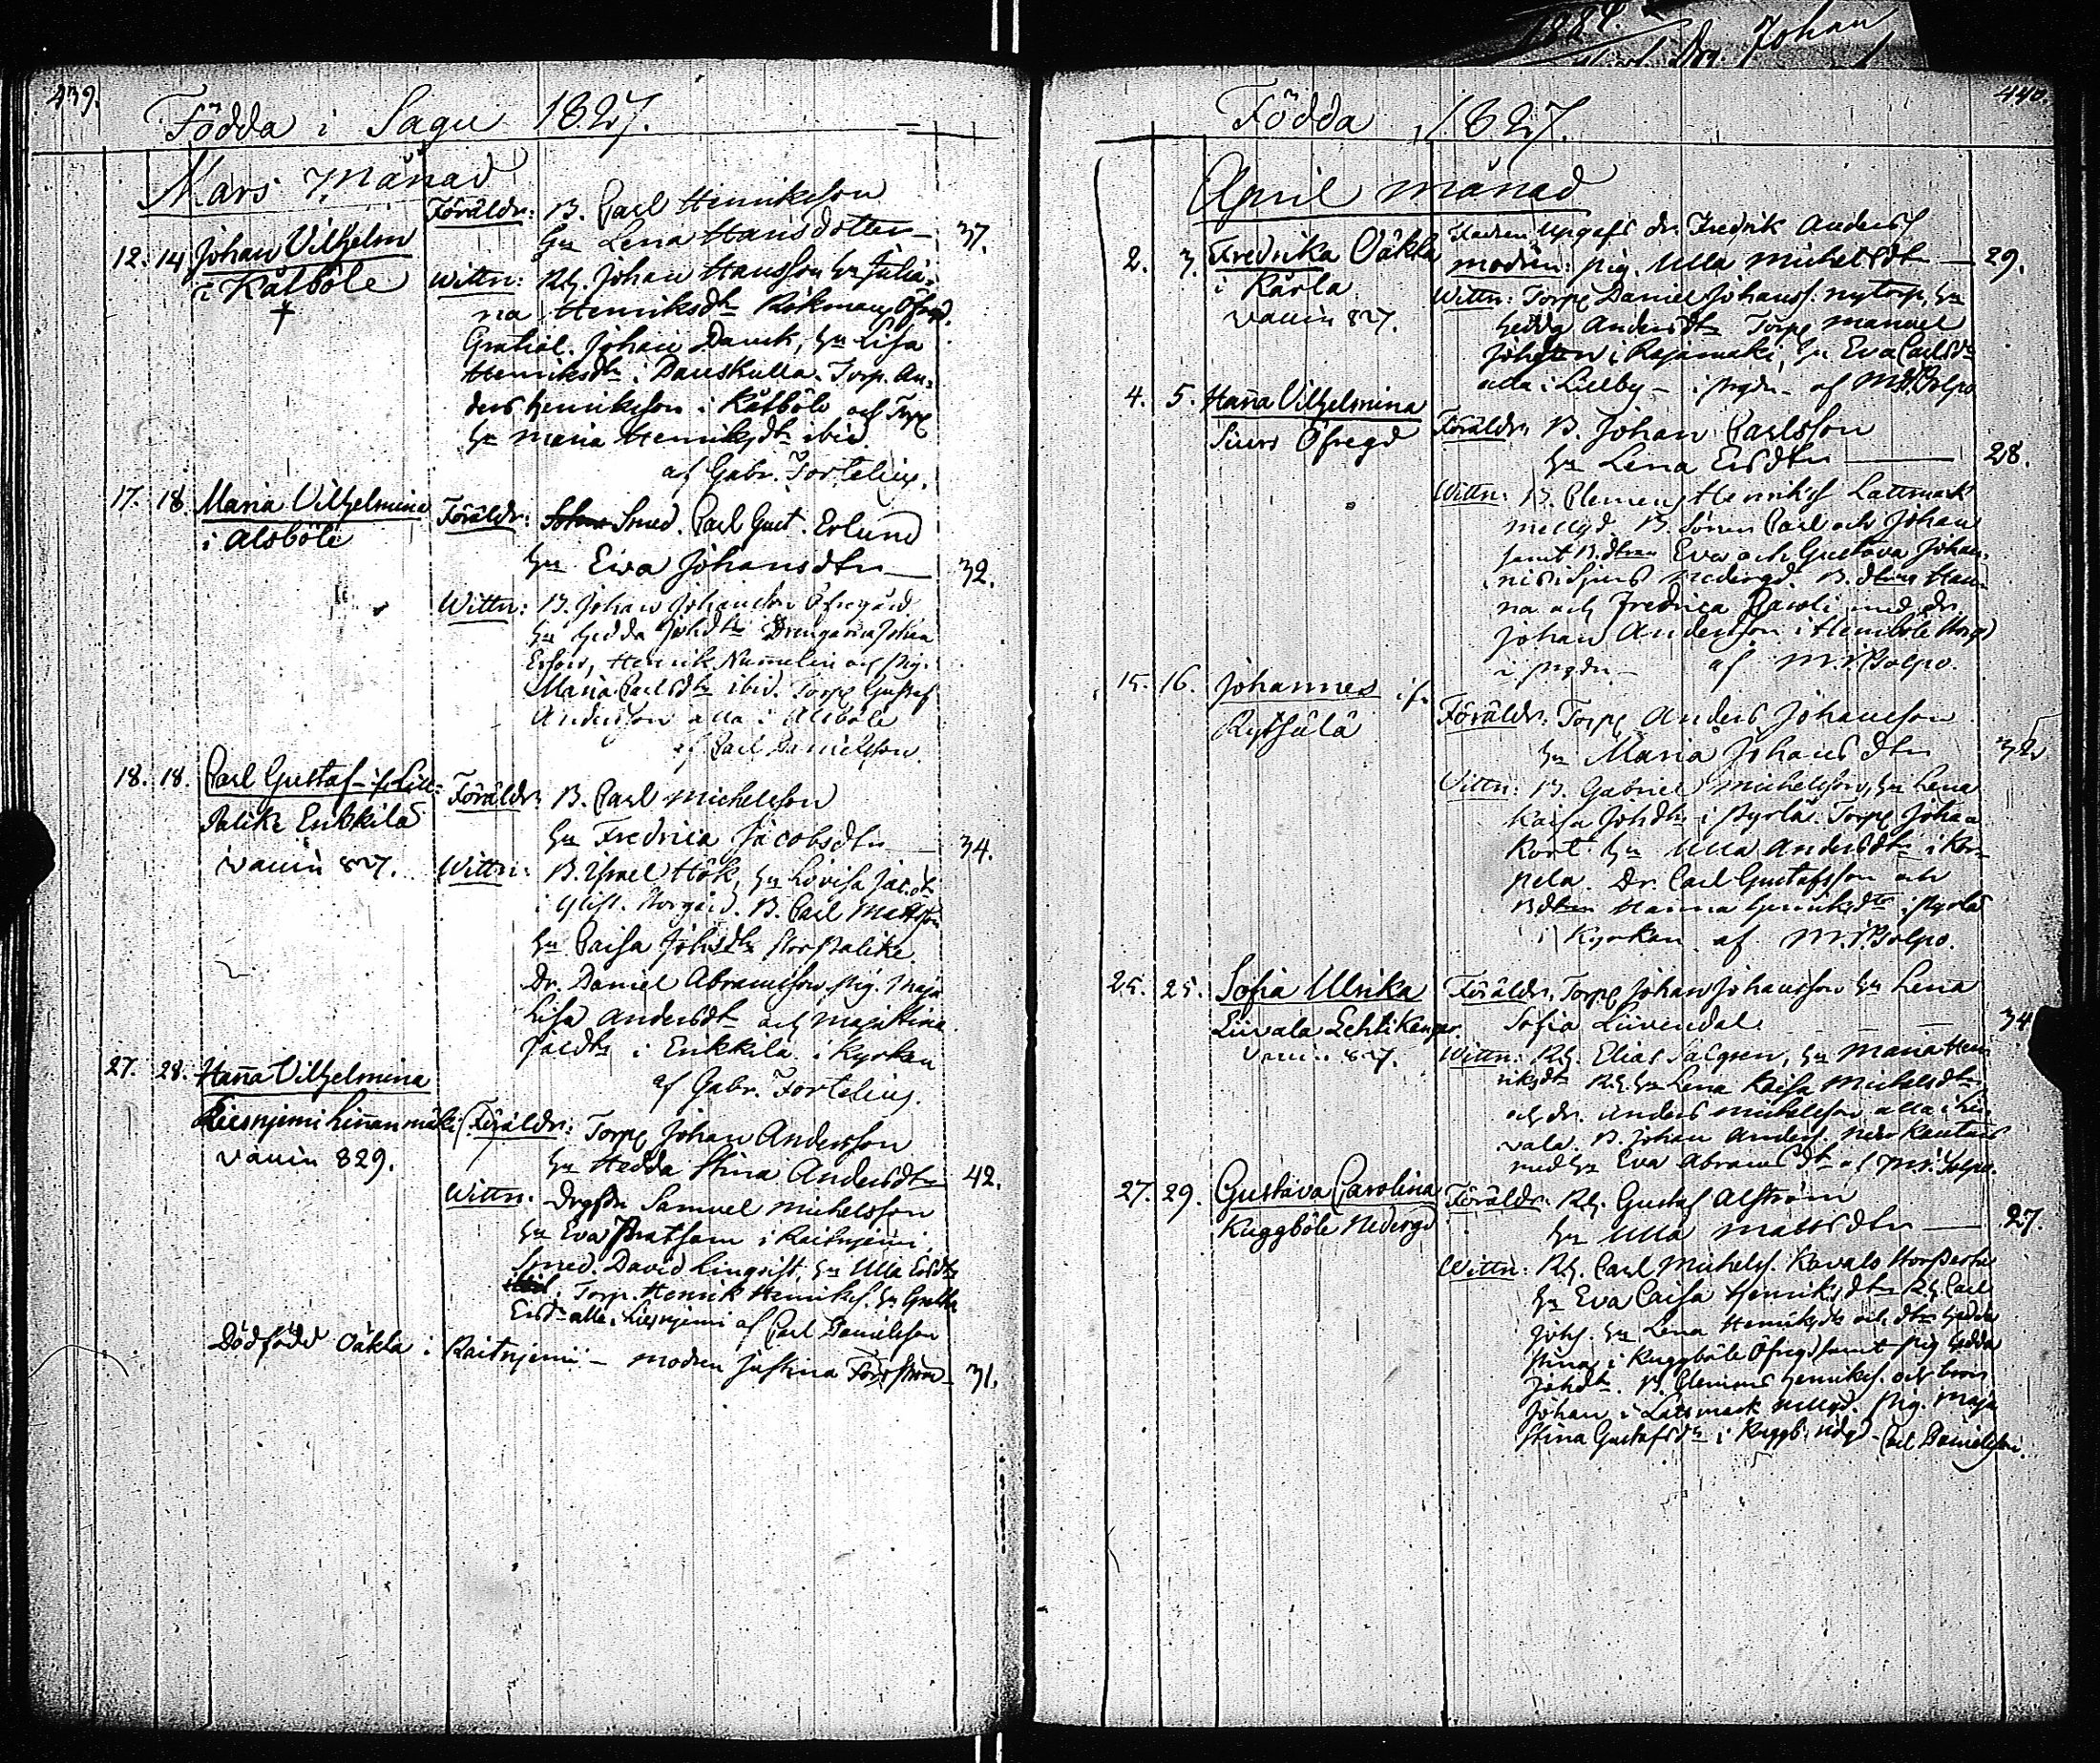 439.
Födda i Sagu 1827.
Mars Månad
12. 14 Johan Vilhelm
i Kålböle
†
Föräldr: B. Carl Henriksson
hu Lena Hansdotter — 37.
Wittn: Rh. Johan Hansson hu Julia-
na Henriksdtr
Gratial. Johan Danck, hu Lisa
Henriksdtr i Danskulla. Torp. An-
ders Henriksson i Kålböle och Torp
hu Maria Henriksdtr ibid.
af Gabr. Fortelius.
17. 18 Maria Vilhelmina
i Alsböle
Föräldr: Smed. Carl Gust. Erlund
hu Eva Johansdtr — 32.
Wittn: B. Johan Johansson Öfvergård
hu Hedda Johdtr Drengarna Johan
Ersson, Henrik Nummelin och Pig.
Maria Carlsdtr ibid. Torp Gustaf
Andersson alla i Alsböle
af Carl Danielsson.
18. 18. Carl Gustaf
Palike Erikkilä
vaccin 827.
Föräldr: B. Carl Michelsson
hu Fredrica Jacobsdtr — 34.
Wittn: B. Israel Hök, hu Lovisa Jac.dtr
Storgård. B. Carl Mattsson
hu Caisa Johsdtr Storpalike.
Dr. Daniel Abramsson, Pig. Maja
Lisa Andersdtr och Maja Stina
Jacdtr i Erikkilä i Kyrkan
af Gabr. Fortelius.
27. 28. Hanna Vilhelmina
Liesnjemi Linnanmäki
vaccin 829.
Föräldr: Torp Johan Andersson
hu Hedda Stina Andersdtr 42.
Wittn. Samuel Michelsson
hu Eva i Raitnjemi
Smed. David Linqvist, hu Ulla Ersdtr
Torp. Henrik Henriks. hu Greta
Ersdtr alla i Liesnjemi af Carl Danielsson
Dödfödd Oäkta i Raitnjemi — modren Justina Forsström — 31.
440.
Födda 1827.
April månad
2. 3. Fredrika Oäkta
i Kärla
vaccin 827.
Fadren upgafs dr. Fredrik Anders
modren: pig. Ulla Michelsdtr — 29.
Wittn: Torp Daniel Johanss. nytorp, hu
Hedda Andersdtr Torp Manuel
i Rajamäki, hu Eva Carlsdtr
alla i Lillby
4. 5. Hanna Vilhelmina
Siurs Öfregd
Föräldr: B. Johan Carlsson
hu Lena Ersdtr — 28.
Wittn: B. Clemens Henrikss Lattmark
mellgd. B. Sönen Carl och Johan
samt B. dtran Eva och Gustava Johan-
B. dtran Han-
na och Fredrica med dr.
Johan Andersson i Hemböle
15. 16. Johannes
Rytsälä
Föräldr: Torp Anders Johansson
hu Maria Johansdtr 32
Wittn: B. Gabriel Michelsson, hu Lena
Kaisa Johdtr i Pyrlä. Torp Johan
Kort hu Ulla Andersdtr i Kor-
pela. Dr. Carl Gustafsson och
Bdtran Hanna Henriksdtr i Pyrlä
i Kyrkan af
25. 25. Sofia Ulrika
Liivala Lehtikangar
vaccin 827.
Föräldr. Torp Johan Johansson hu Lena
Sofia Liivendal — 34
Wittn: Rh. Elias Salgren, hu Maria Hen-
riksdtr Rh. hu Lena Kaisa Michelsdtr
och dr. Anders Michelsson alla i Lii-
vala. B. Johan Anders.
med hu Eva Abramsdtr
27. 29. Gustava Carolina
Kuggböle Nedergd
Föräldr: Rh. Gustaf Alström
hu Ulla Mattsdtr — 27.
Wittn: Rh. Carl Michels.
hu Eva Caisa Henriksdtr Rh. Carl
Johs. hu Lena Henriksdtr och dtr Hedda
Stina i Kuggböle Öfregd samt Pig Hedda
Johdtr. B. Clemens Henrikss. och bror
Johan i Lattmark mellgd. Pig. Maja
Stina Gustafsdtr i Kuggb. nedgd. Carl Danielsson.
1884.
Johan